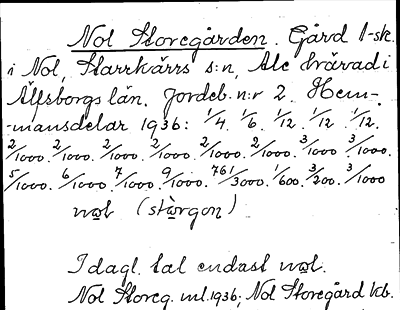 Nol Storegården. Gård 1-sk.
i Nol, Starrkärrs s:n, Ale härad i
Älfsborgs län. Jordeb. n:r 2. Hem-
-mansdelar 1936: 1/4. 1/6. 1/12. 1/12. 1/12.
2/1000. 2/1000. 2/1000. 2/1000. 2/1000. 2/1000. 3/1000. 3/1000.
5/1000. 6/1000. 7/1000. 9/1000. 761/3000. 1/600. 3/200. 3/1000
nol (storgon)
I dagl. tal endast nol.
Nol Storeg. ml. 1936, Nol Storegård kb.